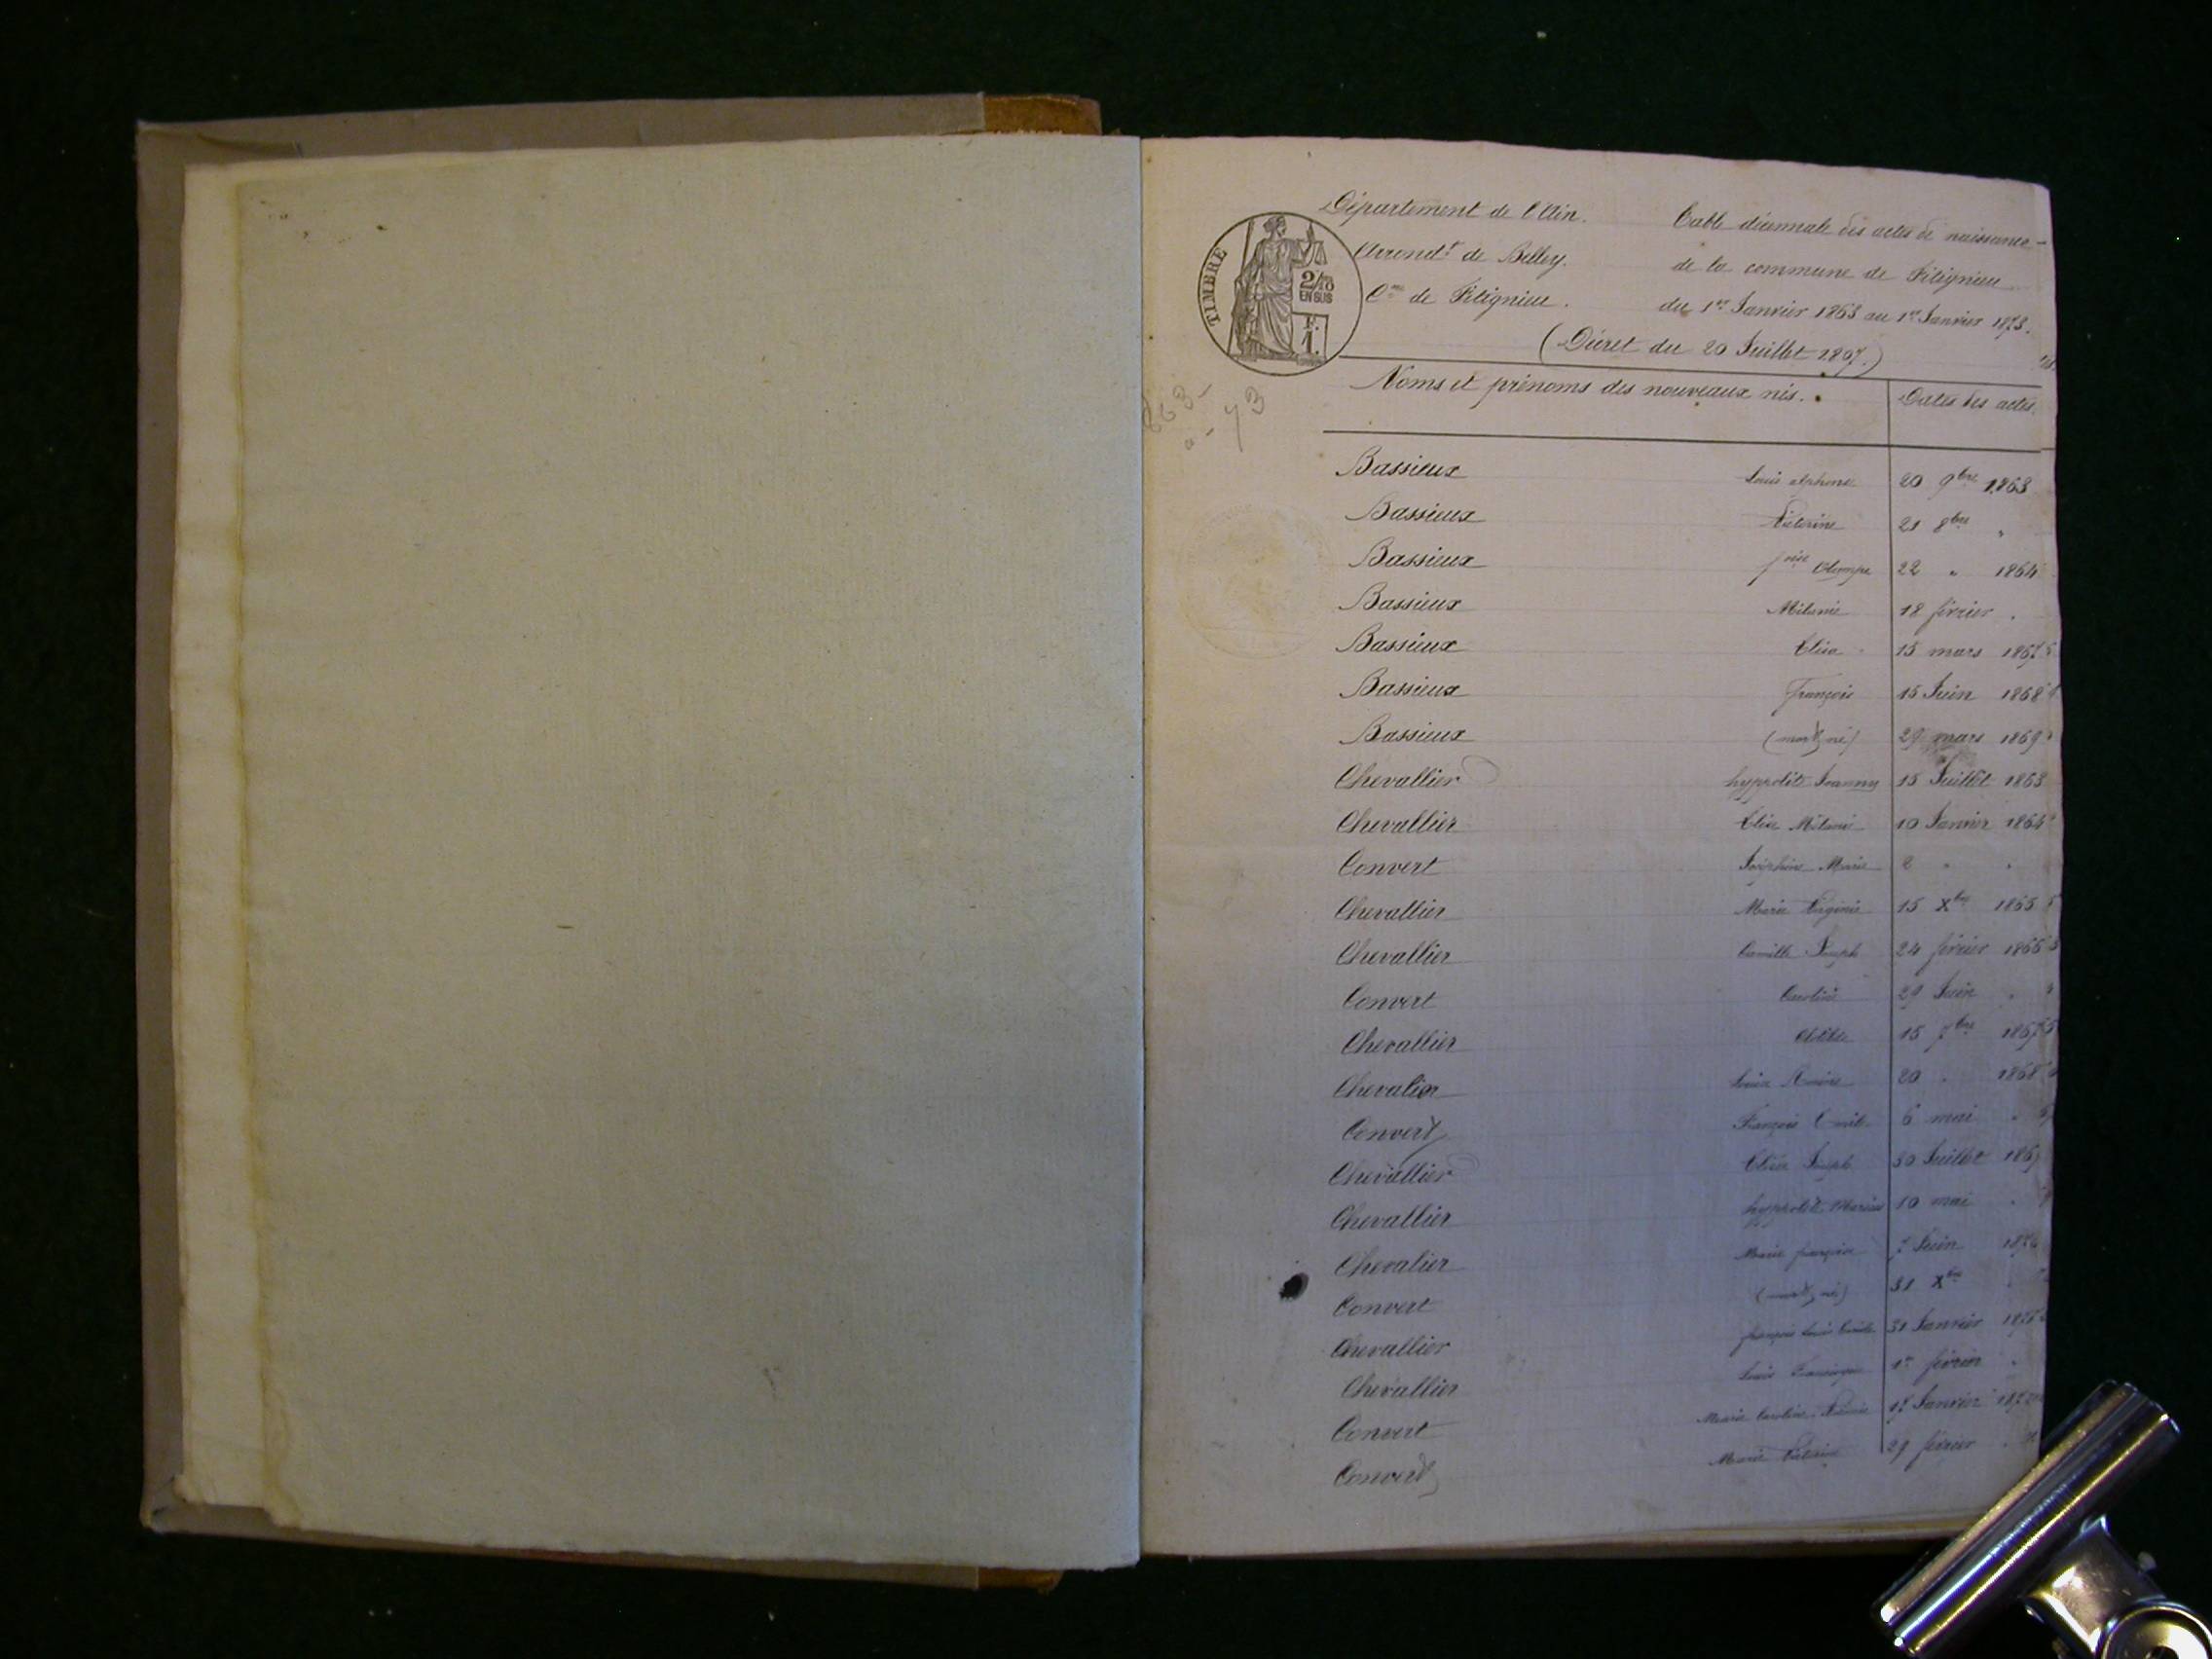 Département de l'Ain.
Arrond.t de Belley.
C.ne de Fitignieu.
Table décennale des actes de naissance
de la commune de Fitignieu
du 1er Janvier 1863 au 1er Janvier 1873.
(Décret du 20 Juillet 1807.)
TIMBRE
2/10
EN SUS
F.
1.
Noms et prénoms des nouveaux nés. Dates des actes.
Bassieux Louis alphonse 20 9bre 1863
Bassieux Victorine 21 8bre "
Bassieux Olympe 22 " 1864
Bassieux Mélanie 18 février "
Bassieux Elisa 15 mars 1867
Bassieux François 15 Juin 1868
Bassieux (mort né) 29 mars 1869
Chevallier hyppolite Joanny 15 Juillet 1863
Chevallier Elise Mélanie 10 Janvier 1864
Convert Joséphine Marie 2 " "
Chevallier Marie Virginie 15 Xbre 1865
Chevallier Camille Joseph 24 février 1866
Convert Caroline 29 Juin "
Chevallier Clotilde 15 7bre 1867
Chevalier 20 " 1868
Convert François Emile 6 mai "
Chevallier Joseph 30 Juillet 1869
Chevallier hyppolite Marius 10 mai "
Chevalier Marie françoise 7 Juin
Convert (mort né) 31 Xbre
Chevallier françois Louis 31 Janvier
Chevallier Louis 1er février "
Convert Marie Caroline 17 Janvier
Convert Marie Victorine 29 février